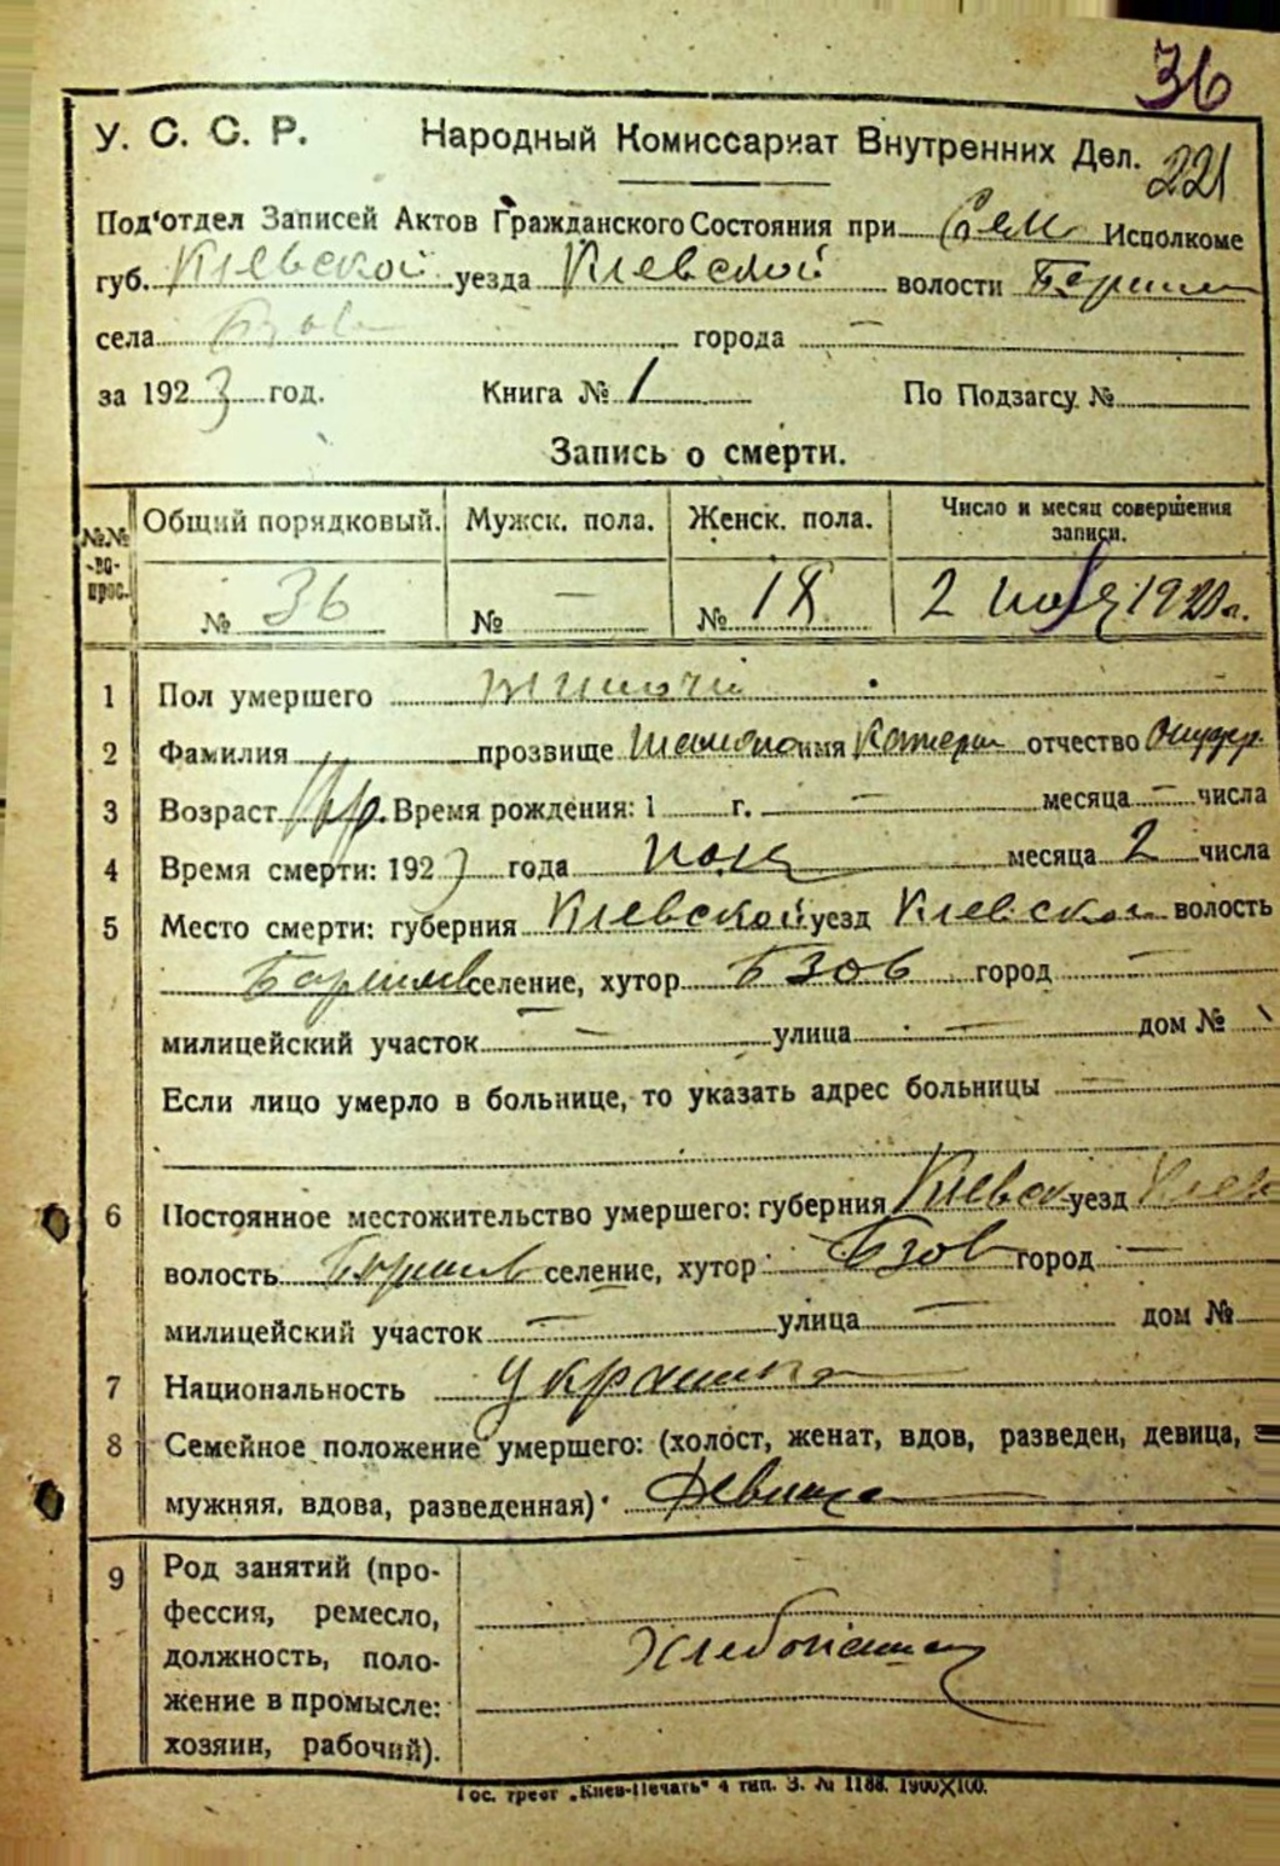 36
У. С. С. Р. Народный Комиссариат Внутренних Дел. 221
Под'отдел Записей Актов Гражданского Состояния при Исполкоме
губ. Киевской уезда Киевской волости
села города —
за 1923 год. Книга № 1 По Подзагсу №
Запись о смерти.
№№ вопрос. Общий порядковый. Мужск. пола. Женск. пола. Число и месяц совершения записи.
№ 36 № — № 18 2
1 Пол умершего
2 Фамилия прозвище имя отчество
3 Возраст Время рождения: 1 г. — месяца — числа
4 Время смерти: 1923 года месяца 2 числа
5 Место смерти: губерния Киевской уезд Киевской волость
селение, хутор Бзов город —
милицейский участок — улица — дом №
Если лицо умерло в больнице, то указать адрес больницы —
6 Постоянное местожительство умершего: губерния Киевск уезд Киев
волость селение, хутор Бзов город —
милицейский участок — улица — дом №
7 Национальность
8 Семейное положение умершего: (холост, женат, вдов, разведен, девица,
мужняя, вдова, разведенная) Девица
9 Род занятий (про-
фессия, ремесло,
должность, поло-
жение в промысле:
хозяин, рабочий).
Гос. трест „Киев-Печать" 4 тип. З. № 1188. 1900X100.